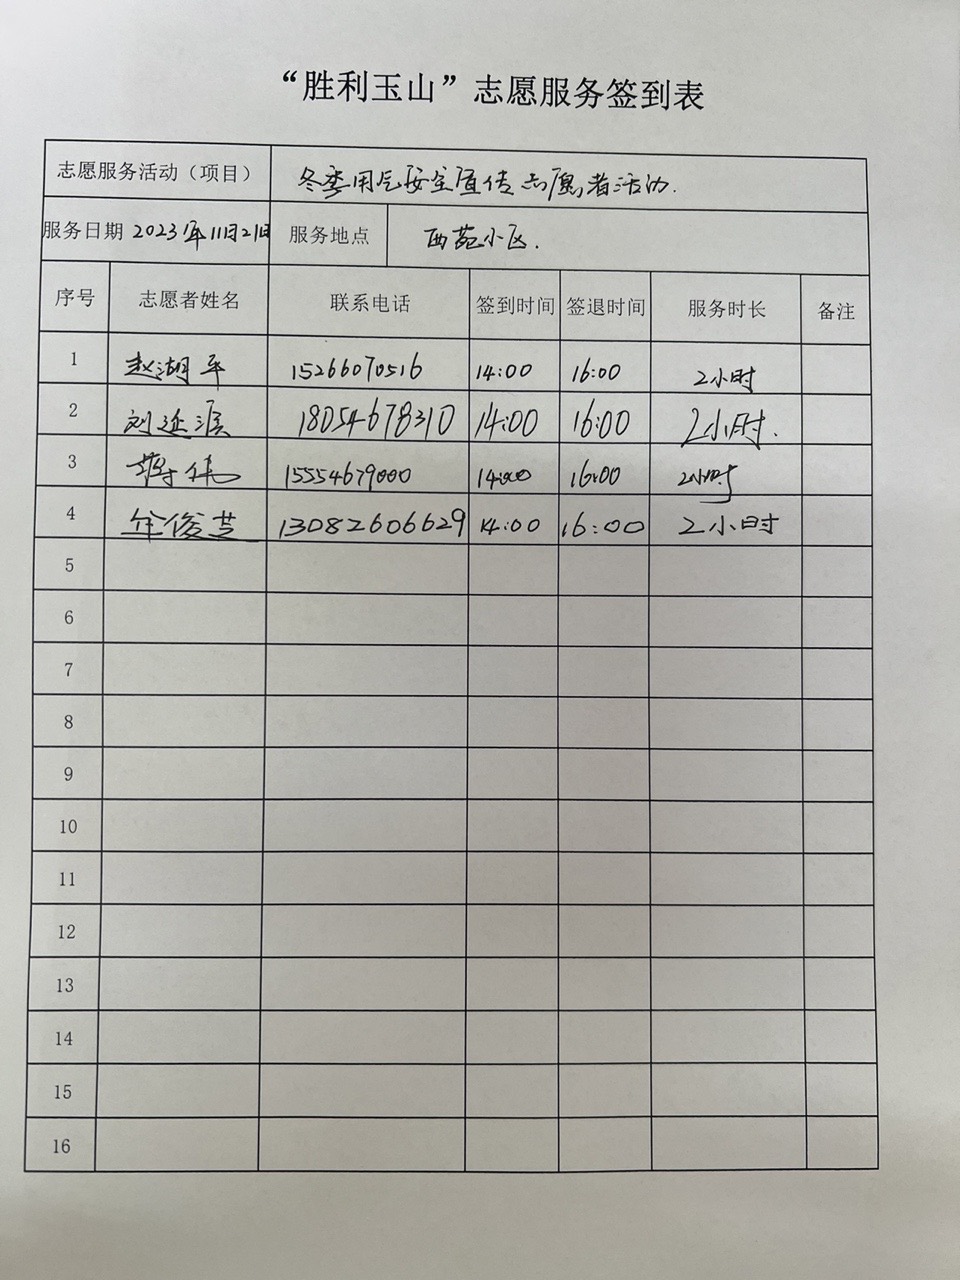 “胜利玉山”志愿服务签到表
志愿服务活动（项目） 冬季用气安全宣传志愿者活动.
服务日期 2023年11月21日 服务地点 西苑小区.
序号 志愿者姓名 联系电话 签到时间 签退时间 服务时长 备注
1 赵湖平 15266070516 14:00 16:00 2小时
2 刘延滨 18054678310 14:00 16:00 2小时.
3 15554679000 14:00 16:00 2小时
4 徐俊芝 13082606629 14:00 16:00 2小时
5
6
7
8
9
10
11
12
13
14
15
16